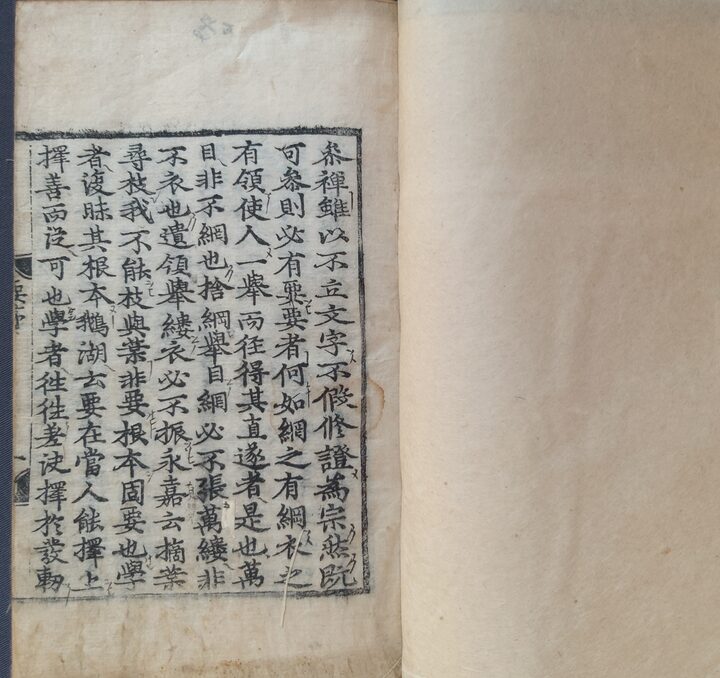 叅禪雖以不立文字不假修證爲宗然既
可叅則必有要要者何如網之有綱衣之
有領使人一舉而徑得其直遂者是也萬
目非不網也捨綱舉目網必不張萬縷非
不衣也遺領舉縷衣必不振永嘉云摘葉
尋枝我不能枝與葉非要根本固要也學
者復昧其根本鵝湖云要在當人能擇上
擇善而從可也學者往往差决擇於發軔